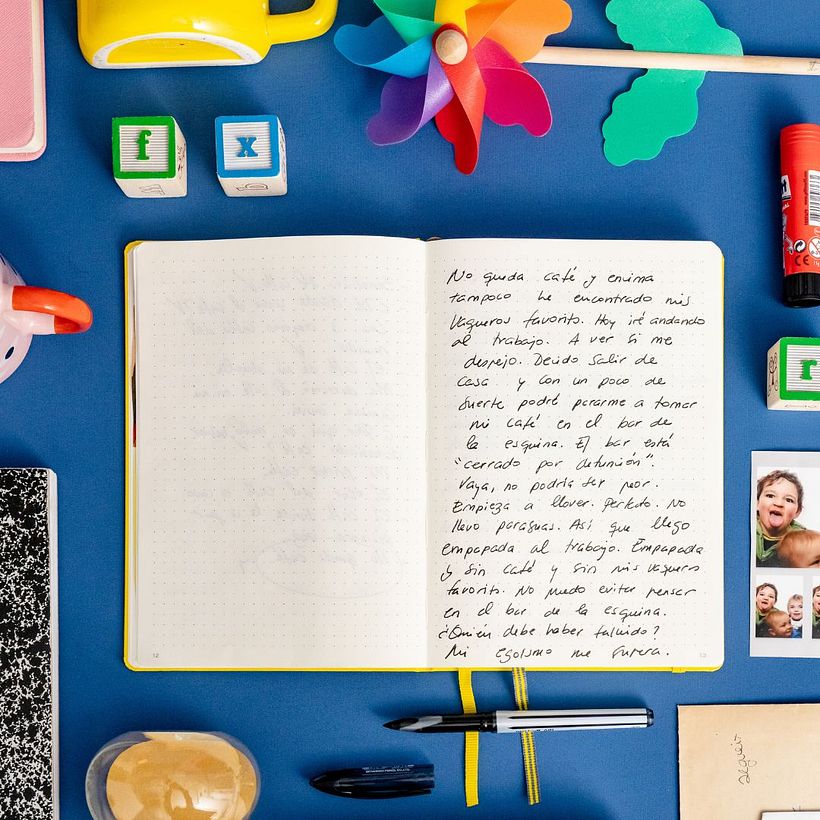 f
x
r
No queda café y encima
tampoco he encontrado mis
vaqueros favoritos. Hoy iré andando
al trabajo. A ver si me
despejo. Decido salir de
casa y con un poco de
suerte podré pararme a tomar
mi café en el bar de
la esquina. El bar está
"cerrado por defunción".
Vaya, no podría ser peor.
Empieza a llover. Perfecto. No
llevo paraguas. Así que llego
empapada al trabajo. Empapada
y sin café y sin mis vaqueros
favoritos. No puedo evitar pensar
en el bar de la esquina.
¿Quién debe haber fallecido?
Mi egoísmo me supera.
12
13